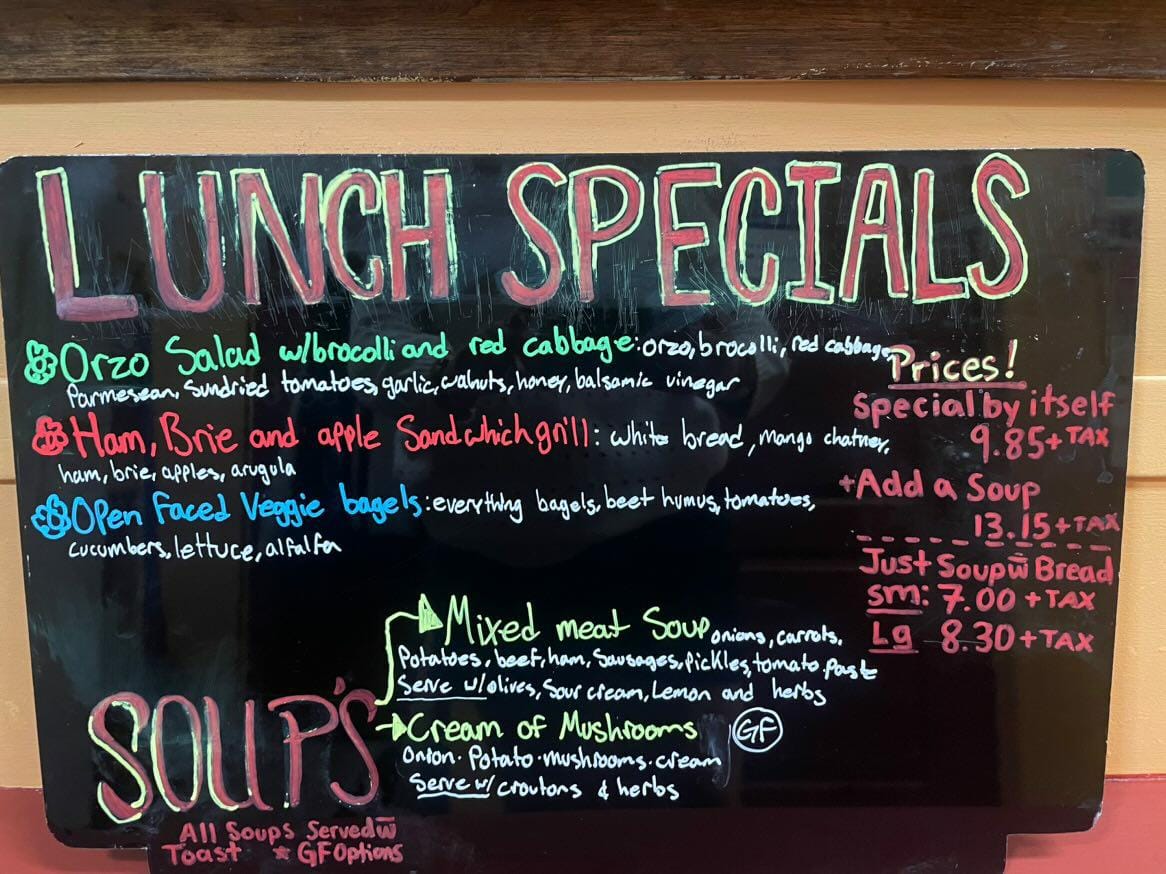 LUNCH SPECIALS
Orzo Salad w/brocolli and red cabbage: orzo, brocolli, red cabbage,
Parmesean, Sundried tomatoes, garlic, walnuts, honey, balsamic vinegar
Ham, Brie and apple Sandwhich grill: white bread, mango chatney,
ham, brie, apples, arugula
Open Faced Veggie bagels: everything bagels, beet humus, tomatoes,
cucumbers, lettuce, alfalfa
Prices!
Special by itself
9.85 + TAX
+Add a Soup
13.15 + TAX
Just Soup w̅ Bread
sm: 7.00 + TAX
Lg 8.30 + TAX
SOUP'S
Mixed meat Soup onions, carrots,
Potatoes, beef, ham, Sausages, Pickles, tomato paste
Serve w/ olives, Sour cream, Lemon and herbs
Cream of Mushrooms GF
Onion · Potato · mushrooms · cream
Serve w/ croutons & herbs
All Soups Served w̅
Toast * GF Options